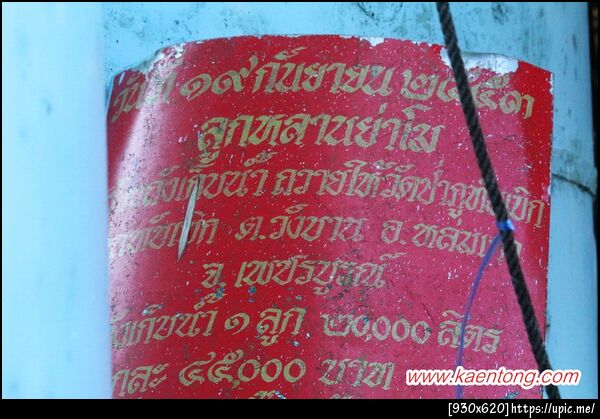 วันที่ ๑๙ กันยายน ๒๕๕๓
ลูกหลานย่าโม
ถังเก็บน้ำ ถวายให้วัดป่าภูทับเบิก
ทับเบิก ต.วังบาล อ.หล่มเก่า
จ.เพชรบูรณ์
ถังเก็บน้ำ ๑ ลูก ๒๐,๐๐๐ ลิตร
ลูกละ ๔๕,๐๐๐ บาท
www.kaentong.com
[930x620]https://upic.me/